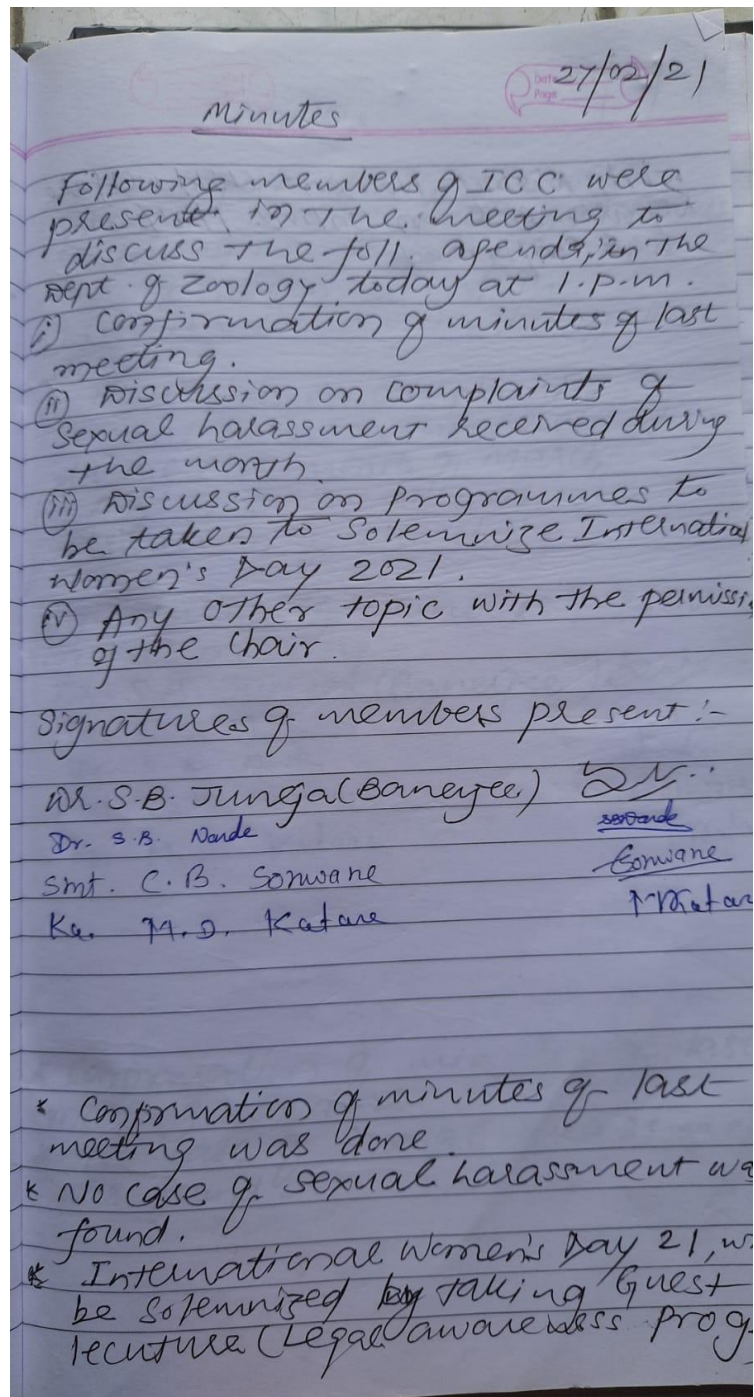 Date 27/02/21
Page
Minutes
Following members of ICC were
present in the meeting to
discuss the foll. agenda, in the
Dept. of Zoology today at 1.p.m.
i) Confirmation of minutes of last
meeting.
ii) Discussion on Complaints of
Sexual harassment received during
the month
iii) Discussion on Programmes to
be taken to Solemnize International
Women's Day 2021.
iv) Any other topic with the permissi
of the Chair.
Signatures of members present :-
Dr. S.B. Juneja (Banerjee)
Dr. S.B. Nande
Smt. C.B. Sonwane Sonwane
Ku. M.D. Katare MDKatar
* Confirmation of minutes of last
meeting was done.
* No case of sexual harassment wa
found.
* International Women's Day 21, w
be solemnized by taking Guest
lecuture (Legal awareness Prog